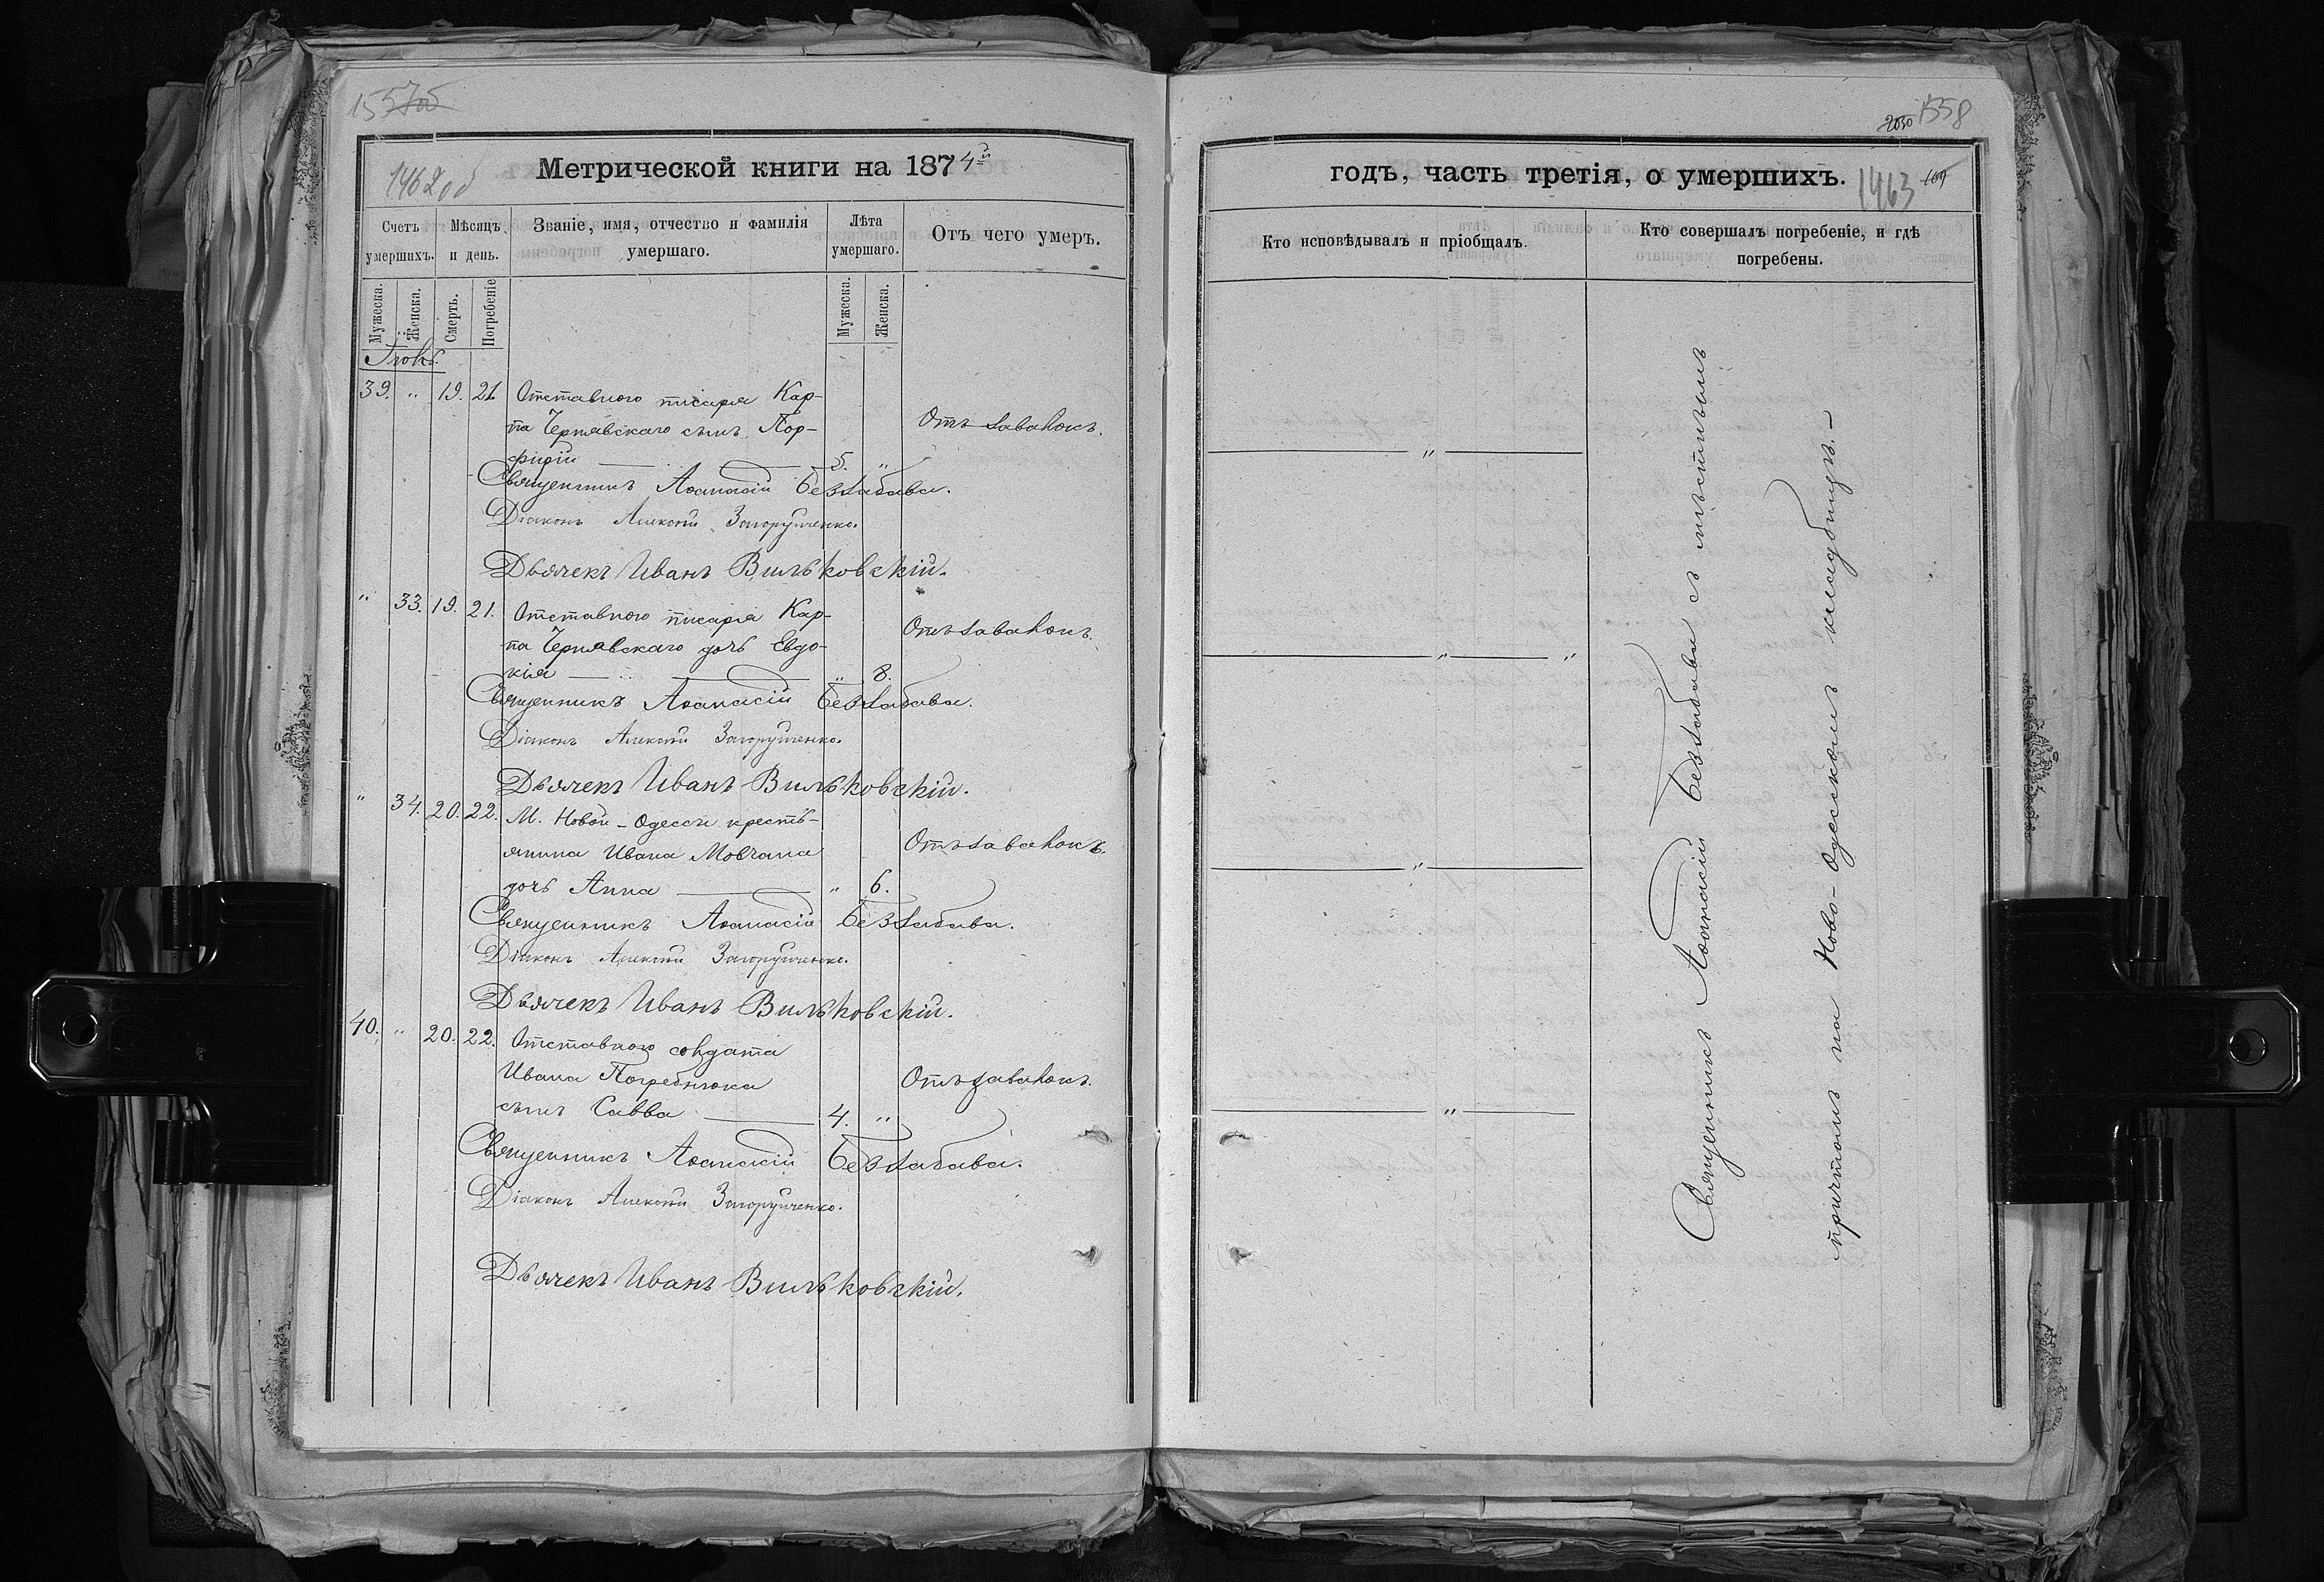 1557об
Метрической книги на 1874й
1462об
Счетъ умершихъ.
Мѣсяцъ и день.
Званіе, имя, отчество и фамилія умершаго.
Лѣта умершаго.
Отъ чего умеръ.
Мужеска.
Женска.
Смерть.
Погребеніе
Мужеска.
Женска.
39. " 19. 21 Отставного писаря Кар-
па Чернявскаго сынъ Пор-
фирій 5. "
Отъ лавокъ.
Священникъ Аѳанасій Беззабава.
Діаконъ Алексій Загоруйченко.
Дьячекъ Иванъ Вильковскій.
" 33. 19. 21. Отставного писаря Кар-
па Чернявскаго дочь Евдо-
кія " 8.
Священникъ Аѳанасій Беззабава.
Діаконъ Алексій Загоруйченко.
Дьячекъ Иванъ Вильковскій.
" 34. 20. 22. М. Новой-Одессы кресть-
янина Ивана Мовчана
дочь Анна " 6.
Священникъ Аѳанасій Беззабава.
Діаконъ Алексій Загоруйченко.
Дьячекъ Иванъ Вильковскій.
40. " 20. 22. Отставного солдата
Ивана Погребнюка
сынъ Савва 4. "
Священникъ Аѳанасій Беззабава.
Діаконъ Алексій Загоруйченко.
Дьячекъ Иванъ Вильковскій.
2030 1558
годъ, часть третія, о умершихъ.
1463
Кто исповѣдывалъ и пріобщалъ.
Кто совершалъ погребеніе, и гдѣ погребены.
"
" "
"
"
Священникъ Аѳанасій Беззабава съ мѣстнымъ
причтомъ на Ново-Одесскомъ кладбищѣ.